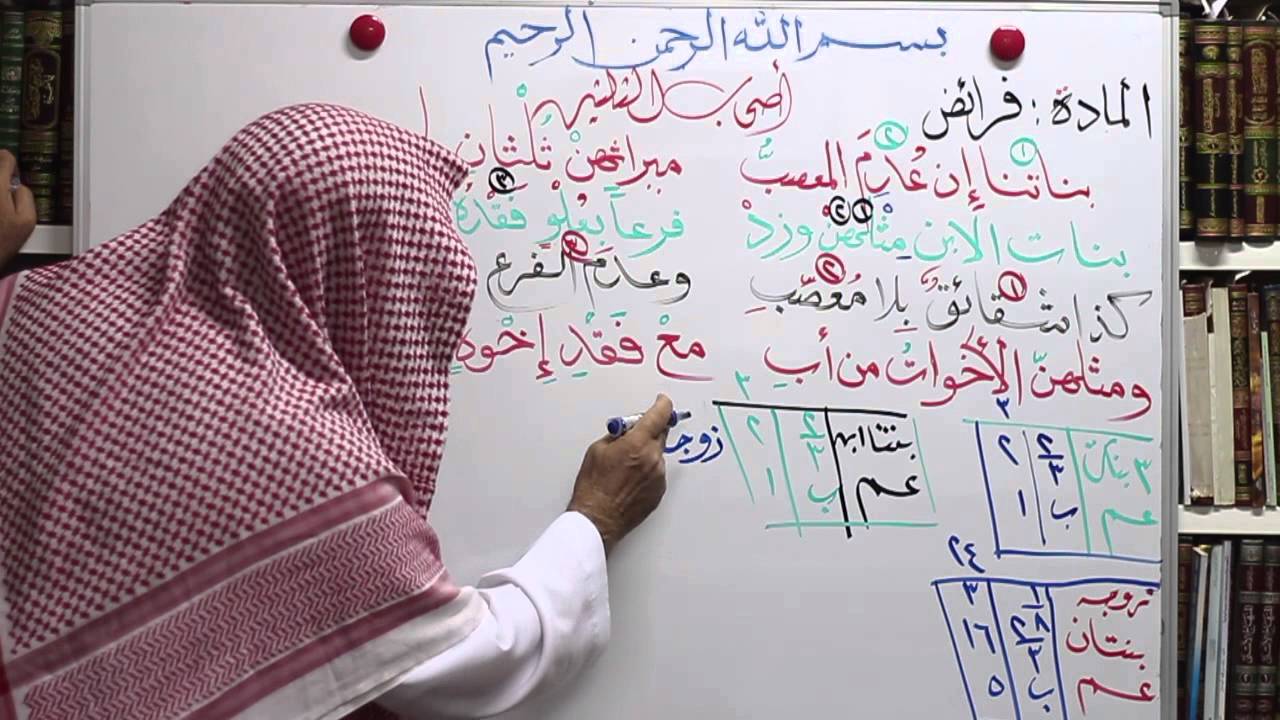 بسم الله الرحمن الرحيم
المادة : فرائض
أصحاب الثلثين
بناتنا إن عُدِمَ المعصبُ ميراثهنْ ثُلثانِ
١ ٢
بنات الابن مِثْلهنْ وزدْ فرعاً بعُلوٍ فَقْدُهُ
١ ٢ ٣
كذا شقائقٌ بِلا مُعصّبِ وعدمَ الفرع
١ ٢ ٣
ومثلهنّ الأخواتُ من أبِ معْ فَقْدِ إخْوةِ
٣
٣ بنات ٢/٣ ٢
عم ب ١
٣
بنتا ابن ٢/٣ ٢
عم ب ١
زوجـ
٢٤
زوجة ١/٨ ٣
بنتان ٢/٣ ١٦
عم ب ٥